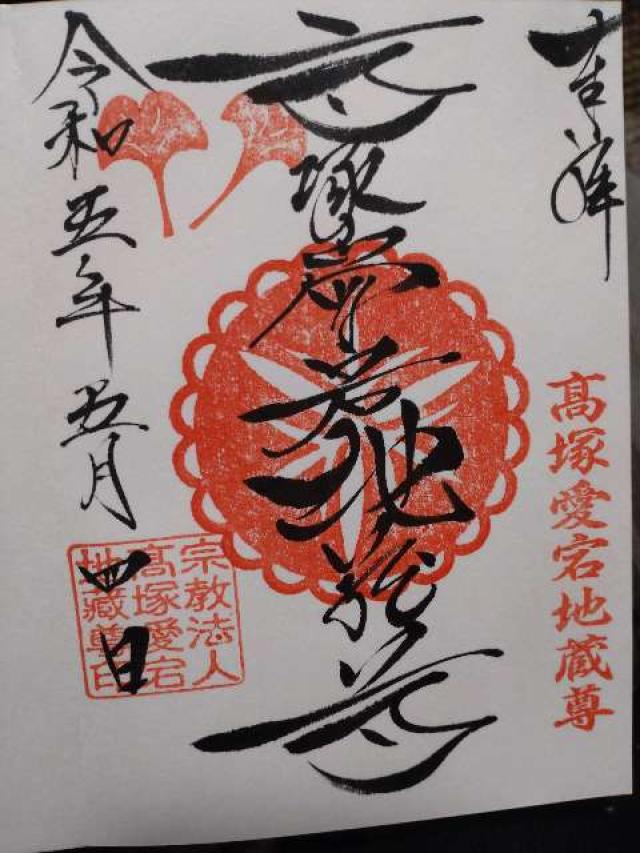 吉祥
髙塚愛宕地蔵尊
高塚愛宕地蔵尊
令和五年五月四日
宗教法人
髙塚愛宕
地藏尊印